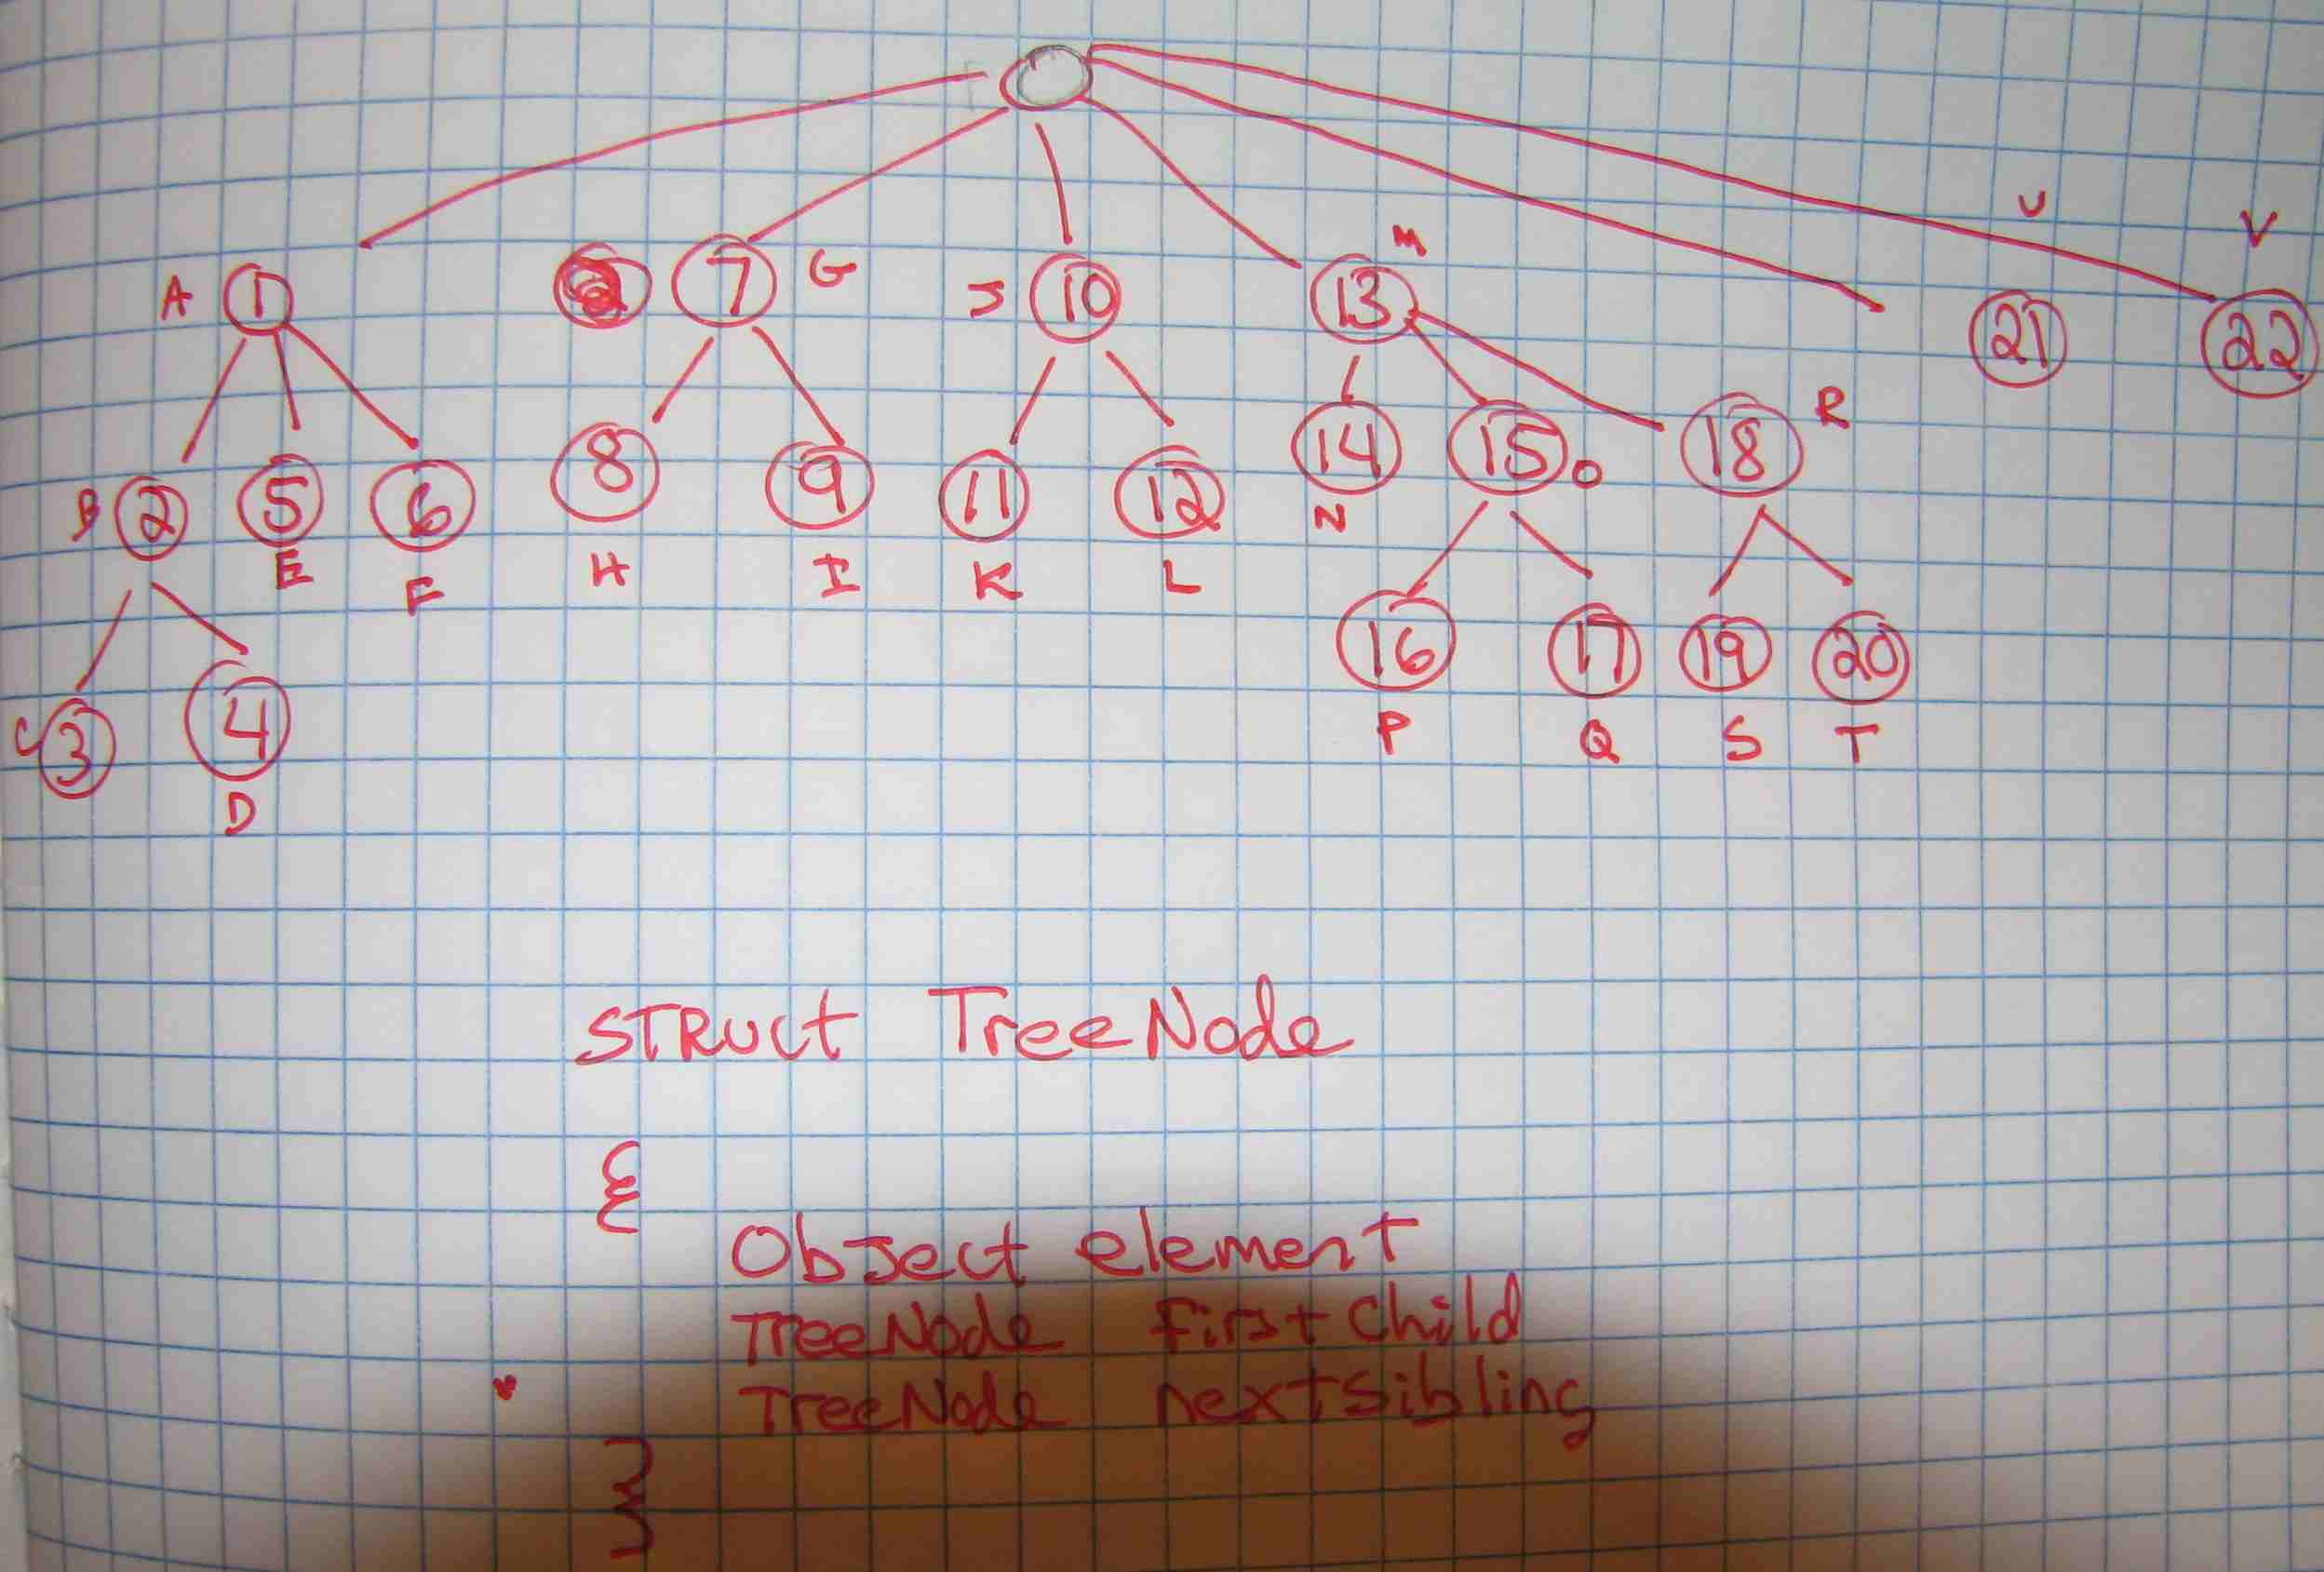 U
V
M
A 1 7 G J 10 13 21 22
R
8 9 11 12 14 15 O 18
B 2 5 6
N
E F H I K L
16 17 19 20
C 3 4
P Q S T
D
STRUCT TreeNode
{
Object element
TreeNode firstChild
TreeNode nextsibling
}